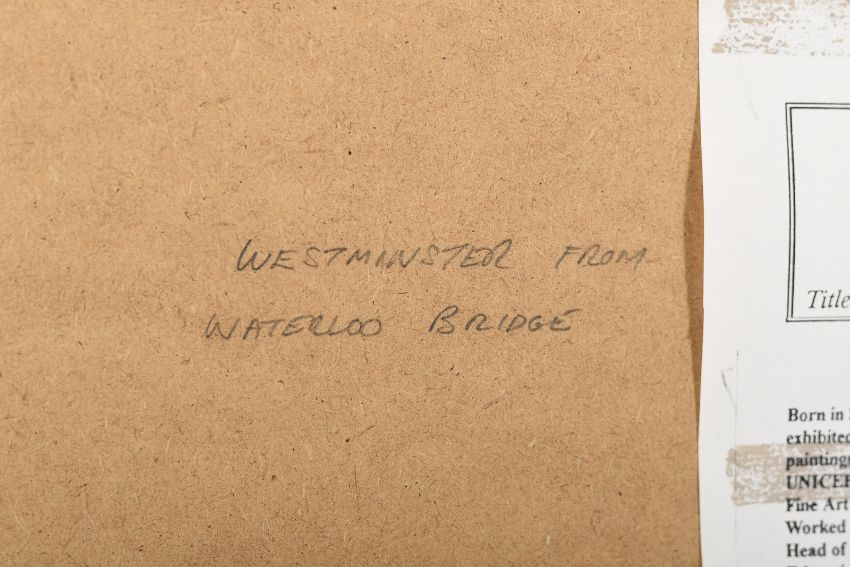 WESTMINSTER FROM
WATERLOO BRIDGE
Title
Born in
exhibited
paintings
UNICEF
Fine Art
Worked
Head of